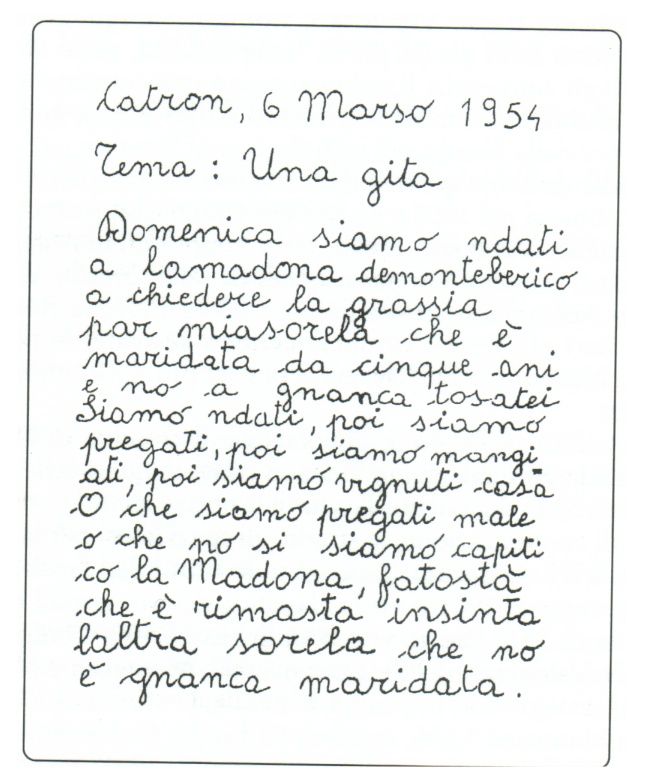 Catron, 6 Marso 1954
Tema : Una gita
Domenica siamo ndati
a lamadona demonteberico
a chiedere la grassia
par miasorela che è
maridata da cinque ani
e no a gnanca tosatei
Siamo ndati, poi siamo
pregati, poi siamo mangi
ati, poi siamo vignuti casa
O che siamo pregati male
o che no si siamo capiti
co la Madona, fatostà
che è rimasta insinta
laltra sorela che no
è gnanca maridata.